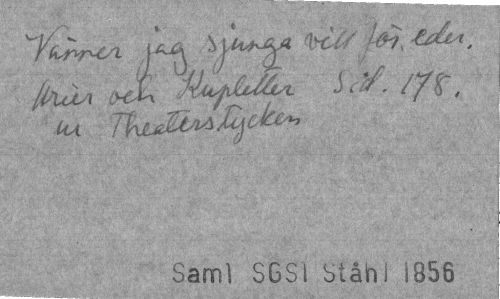 Vänner jag sjunga vill för eder.
Arier och Kupletter Sid. 178.
ur Theaterstycken
Saml SGSl Ståhl 1856